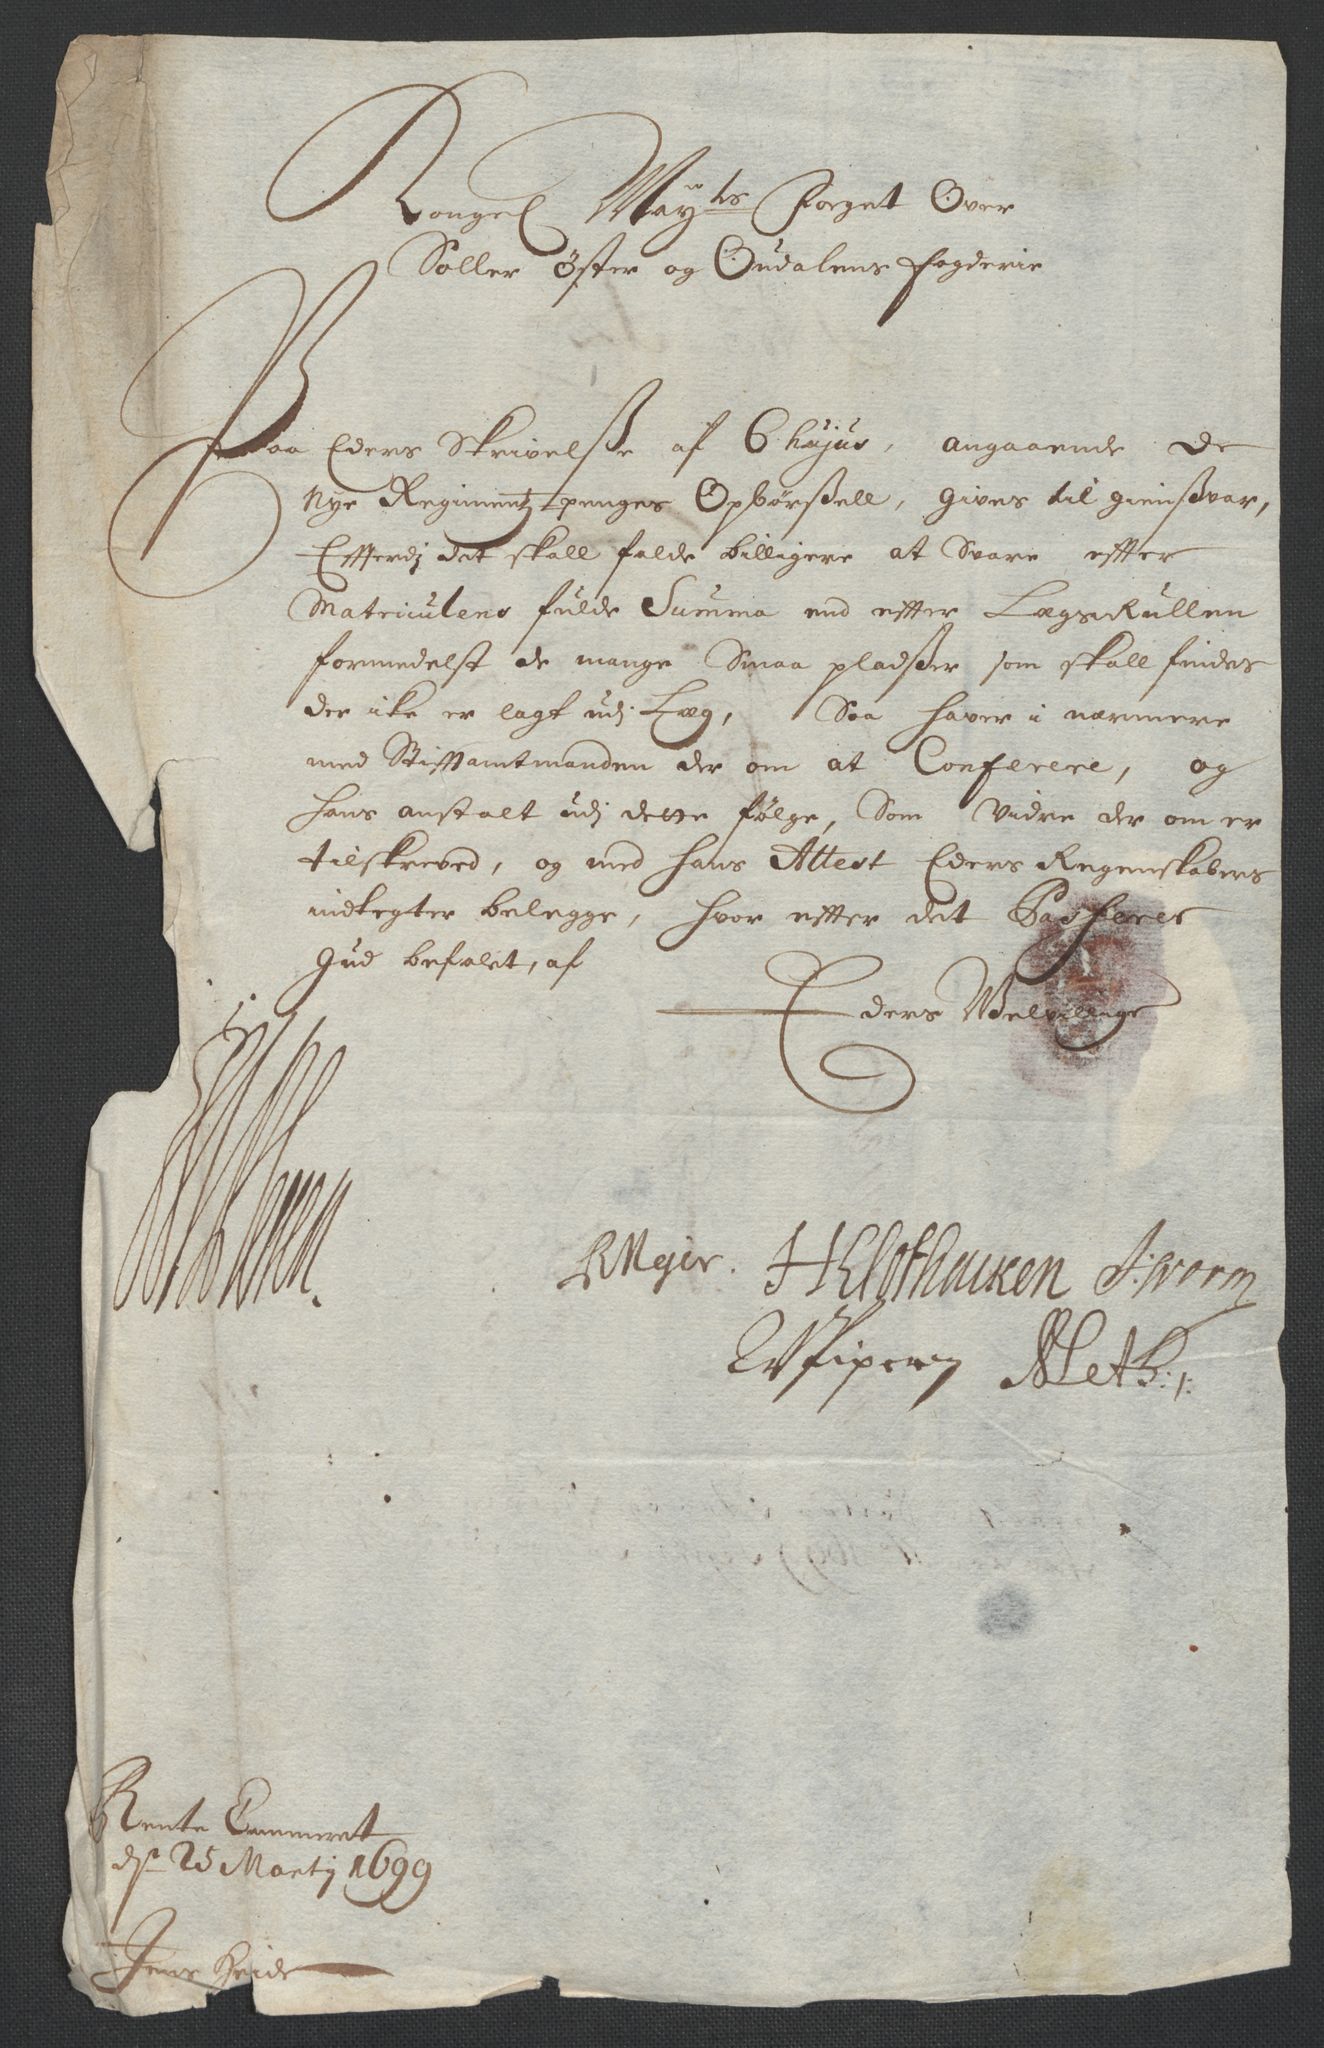 Kongel Mayts Foeget Over
Soller Øster og Oudalens fogderie
Paa Eders Skrivelsße af 6 hujus, angaaende de
Nye Regimentz penges Opbørßell, gives til gienßvar,
Effterdj det skall falde billigere at Svare effter
Matriculens fulde Summa end effter LægsRullen
formedelst de mange Smaa pladßer som skall findes
der ike er lagt udj Læg, Saa haver i nærmere
med Stifftamtmanden der om at Conferere, og
hans anstalt udj dette følge, Som Vidre der om er
tilskreved, og med hans Attest Eders Regenskabers
indtegter belegge, hvor effter det Passeres
Gud befalet, af
Eders Welvillige
RMejer. HKlothacken J:worm
Rente Cammeret
dn 25 Martij 1699
Jens Heide